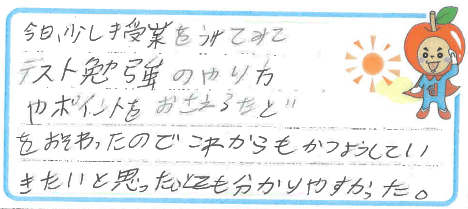 今日、少しき授業をうけてみて
テスト勉強のやり方
やポイントをおさえるなど
をおそわったのでこれからもかつようしてい
きたいと思った。とても分かりやすかった。